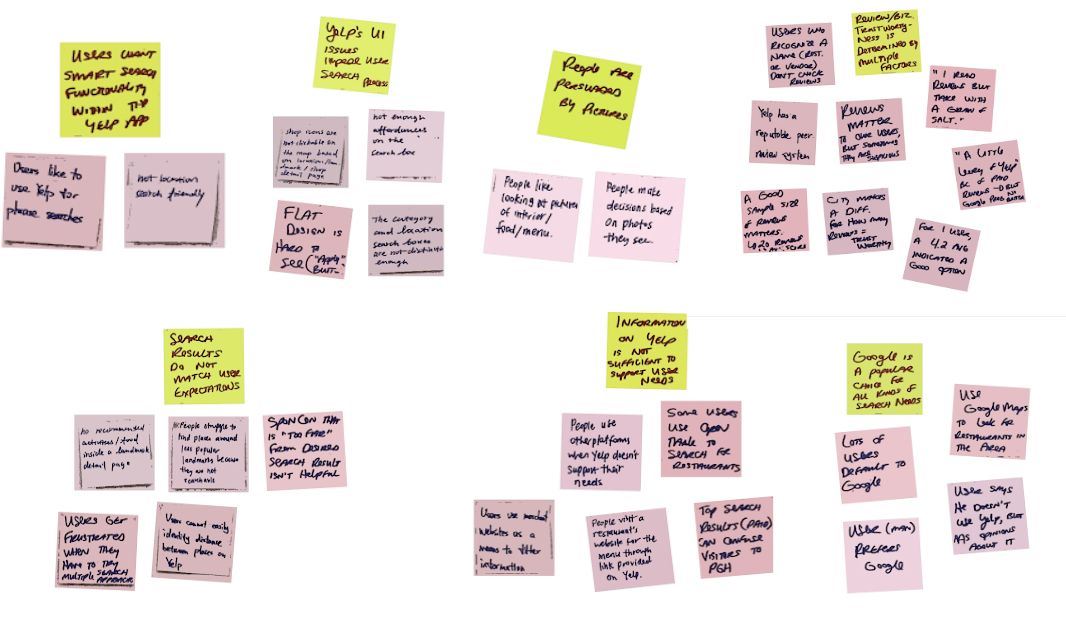 USERS WANT
SMART SEARCH
FUNCTIONALITY
WITHIN THE
YELP APP
Users like to
use Yelp for
phrase searches
not location
search friendly
YELP'S UI
ISSUES
IMPEDE USER
SEARCH
PROCESS
shop icons are
not clickable on
the map based
on location/
detail page
not enough
affordances
on the
search box
FLAT
DESIGN IS
HARD TO
SEE ("Apply"
BUT-
The category
and location
search boxes
are not distinct
enough
People Are
PERSUADED
By PICTURES
People like
looking at pictures
of interior/
food/menu.
People make
decisions based
on photos
they see.
REVIEW/BIZ.
TRUSTWORTHY-
NESS IS
DETERMINED BY
MULTIPLE
FACTORS
USERS WHO
RECOGNIZE A
NAME (REST.
OR VENDOR)
DON'T CHECK
REVIEWS
"I READ
REVIEWS BUT
TAKE WITH
A GRAIN OF
SALT."
Yelp has a
reputable peer
review system
REVIEWS
MATTER
TO OUR USERS,
BUT SOMETIMES
THEY ARE SUSPICIOUS
"A LITTLE
LEERY OF YELP
BC OF PAID
REVIEWS → BUT
GOOGLE
A GOOD
SAMPLE SIZE
OF REVIEWS
MATTERS.
CITY MAKES
A DIFF.
FOR HOW MANY
REVIEWS =
TRUST
WORTHY
FOR 1 USER,
A 4.2 AVG
INDICATED A
GOOD OPTION
SEARCH
RESULTS
DO NOT
MATCH USER
EXPECTATIONS
no recommended
activities/food
inside a landmark
detail page
People struggle to
find places around
less popular
landmarks because
they are not
searchable
SPONCON THAT
IS "TOO FAR"
FROM DESIRED
SEARCH RESULT
ISN'T HELPFUL
USERS GET
FRUSTRATED
WHEN THEY
HAVE TO TRY
MULTIPLE SEARCH
Users cannot easily
identify distance
between places on
Yelp
INFORMATION
ON YELP
IS NOT
SUFFICIENT TO
SUPPORT USER
NEEDS
People use
other platforms
when Yelp doesn't
support their
needs
SOME USERS
USE OPEN
TABLE TO
SEARCH FOR
RESTAURANTS
Users use merchant
websites as a
means to
information
People visit a
restaurant's
website for the
menu through
link provided
on Yelp.
TOP SEARCH
RESULTS (PAID)
CAN CONFUSE
VISITORS TO
PGH
GOOGLE IS
A POPULAR
CHOICE FOR
ALL KINDS OF
SEARCH NEEDS
USE
GOOGLE MAPS
TO LOOK FOR
RESTAURANTS IN
THE AREA
LOTS OF
USERS
DEFAULT TO
GOOGLE
USER SAYS
HE DOESN'T
USE YELP, BUT
HAS OPINIONS
ABOUT IT
USER (MAN)
PREFERS
GOOGLE